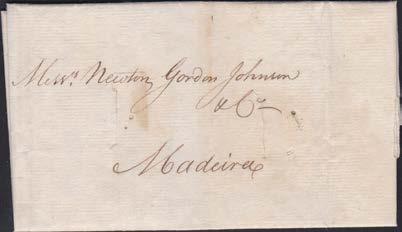 Messrs. Newton, Gordon Johnson
& Co.
Madeira